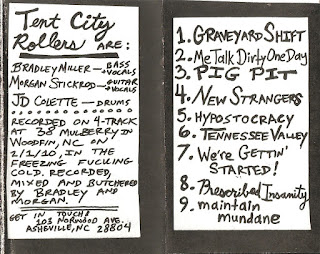 Tent City
Rollers ARE:
BRADLEY MILLER — BASS
+VOCALS
MORGAN STICKROD — GUITAR
+VOCALS
JD COLETTE — DRUMS
RECORDED ON 4-TRACK
AT 38 MULBERRY IN
WOODFIN, NC ON
2/1/10, IN THE
FREEZING FUCKING
COLD. RECORDED,
MIXED AND BUTCHERED
BY BRADLEY AND
MORGAN.
GET IN TOUCH:
103 NORWOOD AVE.
ASHEVILLE, NC 28804
1. GRAVEYARD SHIFT
2. Me Talk Dirty One Day
3. PIG PIT
4. NEW STRANGERS
5. HYPOSTOCRACY
6. TENNESSEE VALLEY
7. WE'RE GETTIN'
STARTED!
8. Prescribed Insanity
9. maintain
mundane